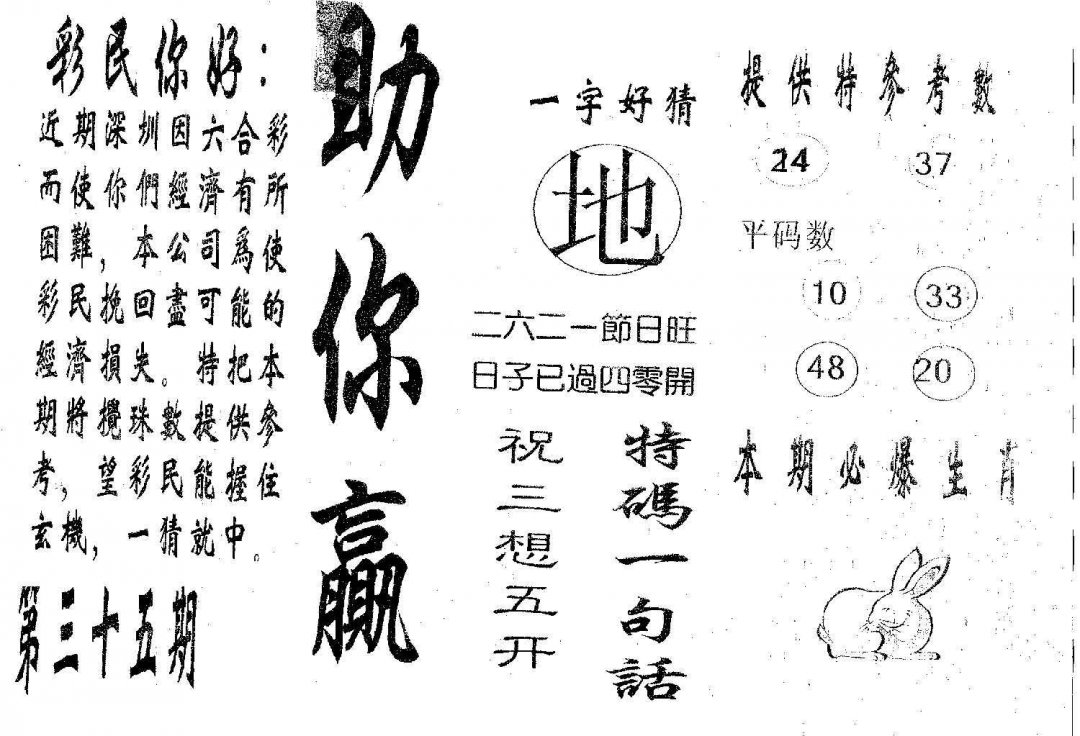 彩民你好：
近期深圳因六合彩
而使你們經濟有所
困難，本公司爲使
彩民挽回盡可能的
經濟損失。特把本
期將攪珠數提供參
考，望彩民能握住
玄機，一猜就中。
第三十五期
助你贏
一字好猜
地
二六二一節日旺
日子已過四零開
特碼一句話
祝三想五开
提供特參考數
24 37
平码数
10 33
48 20
本期必爆生肖